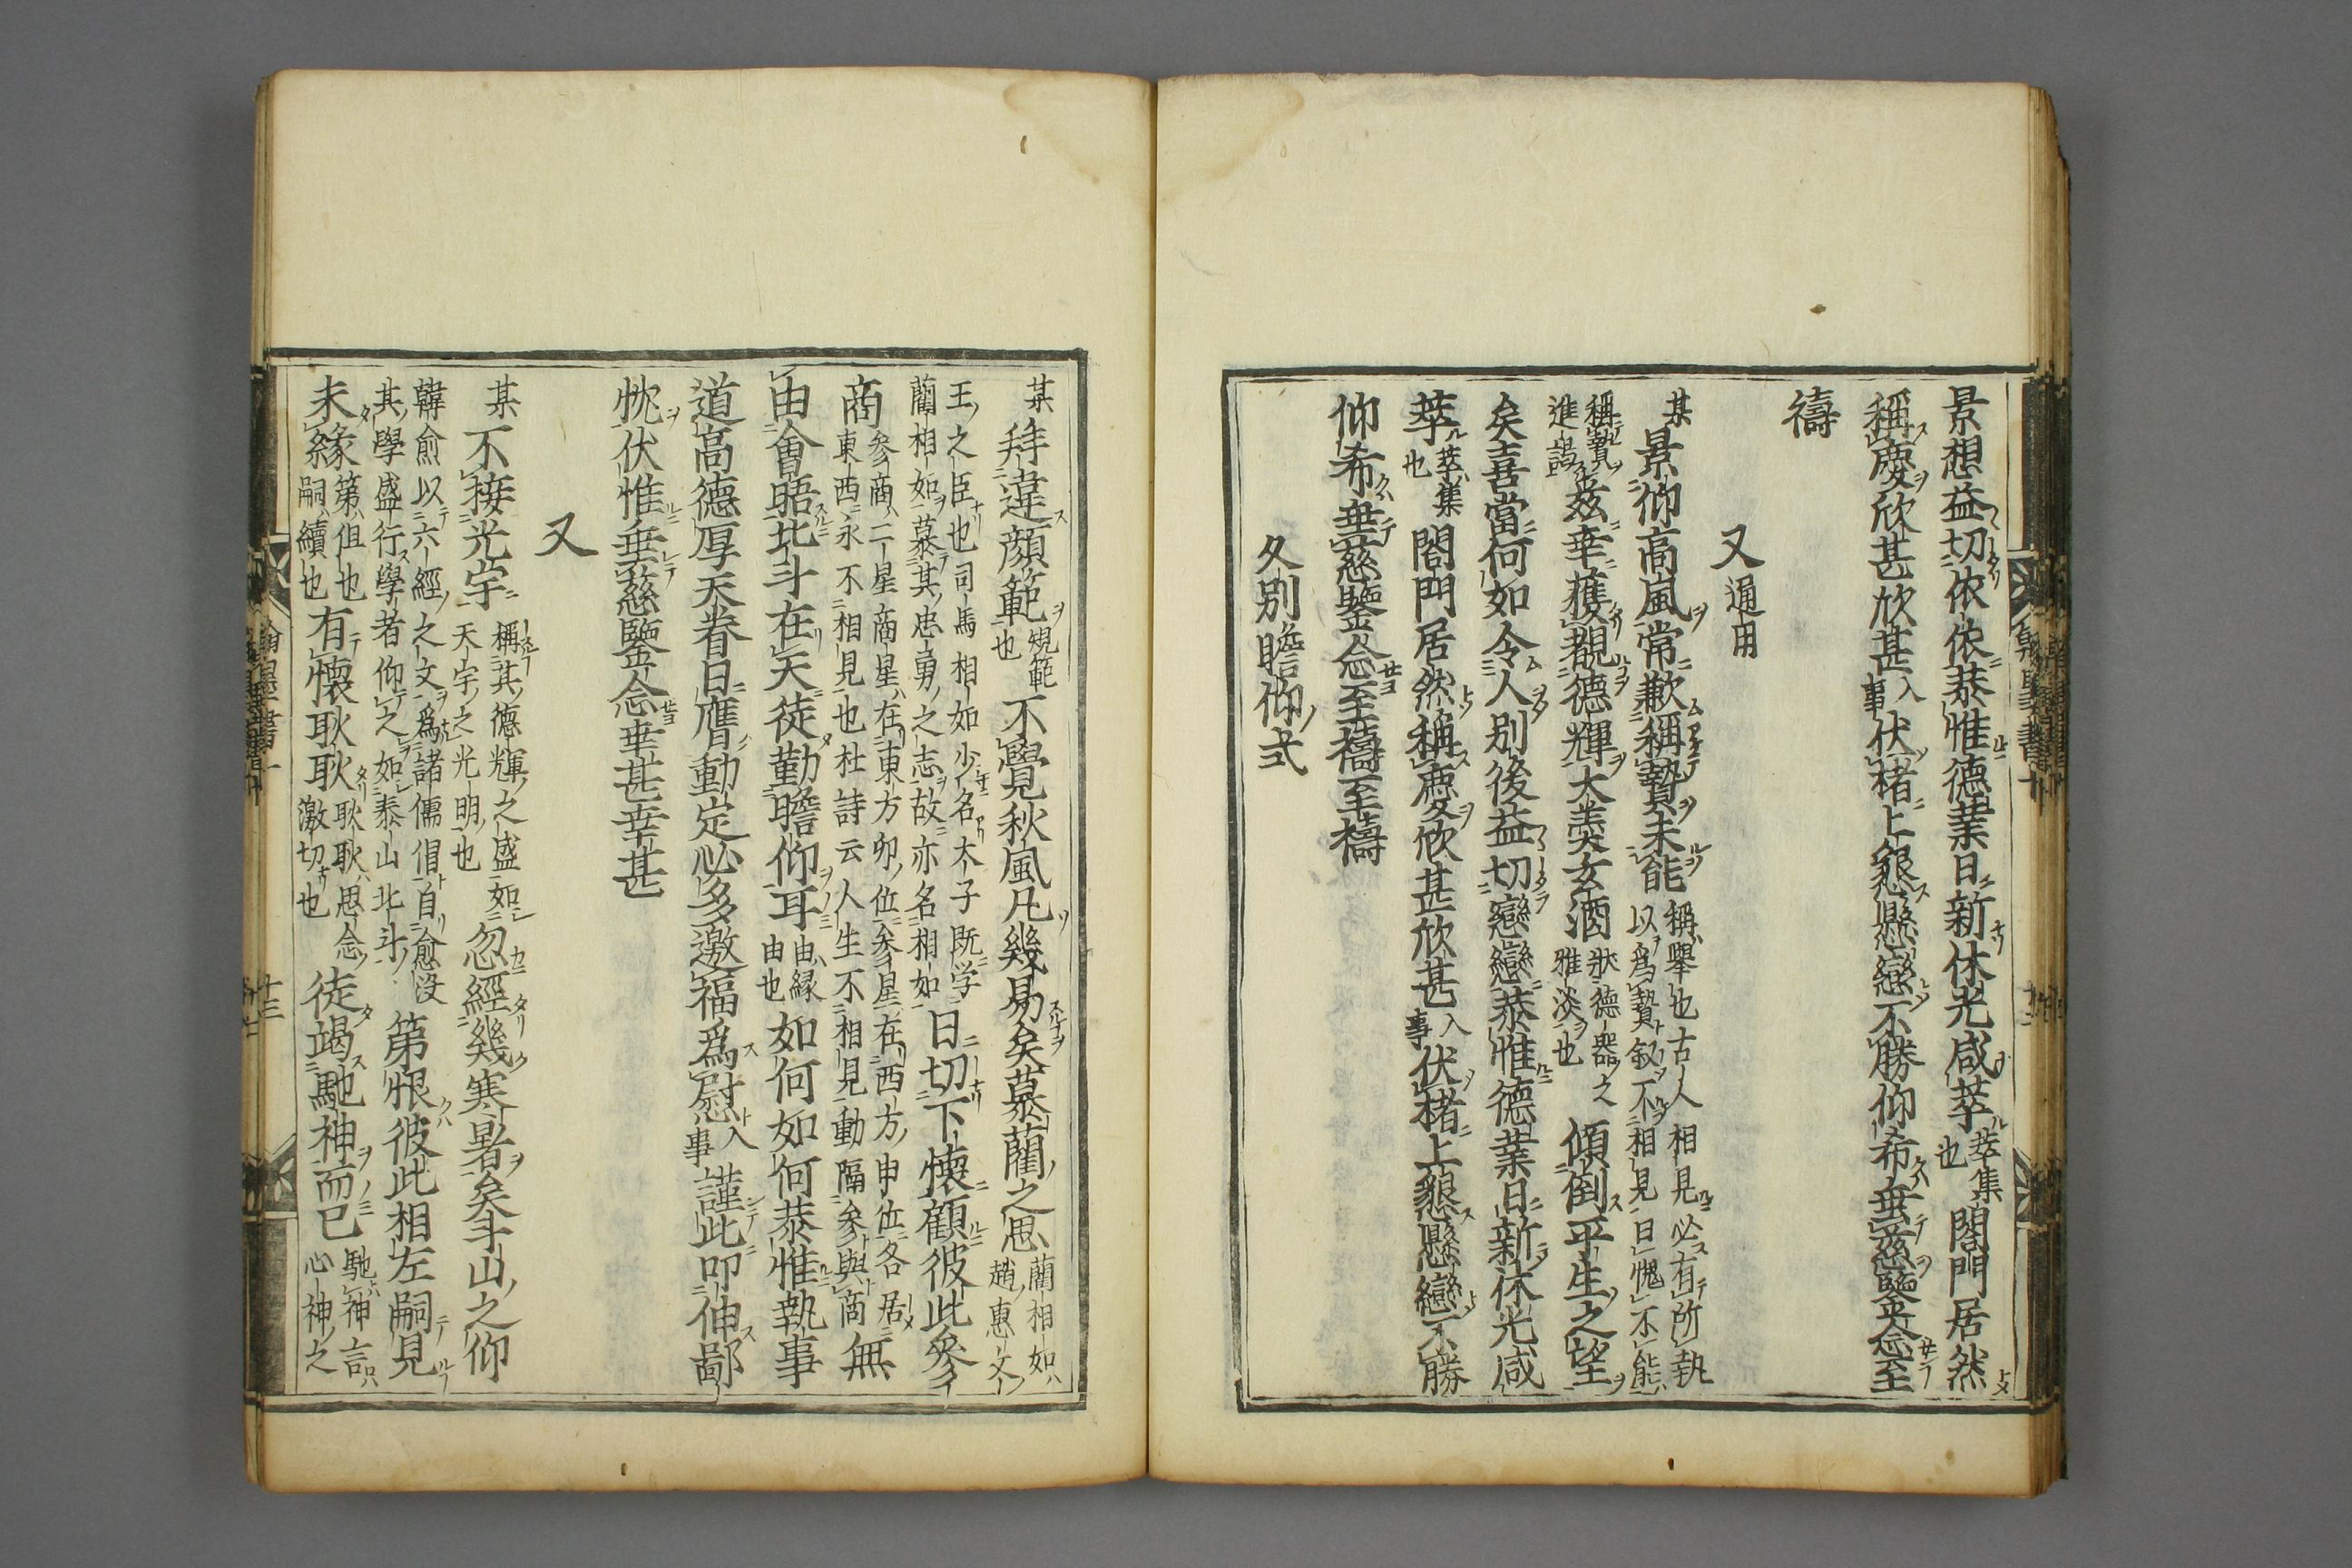 景想益切依依恭惟德業日新休光咸萃萃集也閤門居然
稱慶欣甚欣甚入事伏楮上懇懸戀不勝仰希垂慈鑒念至
禱
又通用
某景仰高風常歉稱贄未能稱舉也古人相見必有所執以爲贄叙不相見曰愧不能
稱贄進謁兹幸獲覩德輝大羹玄酒狀德器之雅淡也傾倒平生之望
矣喜當何如令人別後益切戀戀恭惟德業日新休光咸
萃萃集也閤門居然稱慶欣甚欣甚入事伏楮上懇懸戀不勝
仰希垂慈鑒念至禱至禱
久別瞻仰式
某拜違顔範規範也不覺秋風凡幾易矣慕藺之思藺相如趙惠文
王之臣也司馬相如少名犬子既学藺相如慕其忠勇之志故亦名相如日切下懷顧彼此參
商參商二星商星在東方卯位參星在西方申位各居東西永不相見也杜詩云人生不相見動隔參與商無
由會晤北斗在天徒勤瞻仰耳由縁由也如何如何恭惟執事
道高德厚天眷日膺動定必多邀福爲慰入事謹此叩伸鄙
忱伏惟垂慈鑒念幸甚幸甚
又
某不接光宇稱其德輝之盛如天宇之光明也忽經幾寒暑矣斗山之仰
韓愈以六經之文爲諸儒倡自愈没其學盛行學者仰之如泰山北斗第恨彼此相左嗣見
未緣第但也嗣續也有懷耿耿耿耿思念激切也徒竭馳神而已馳神言心神之